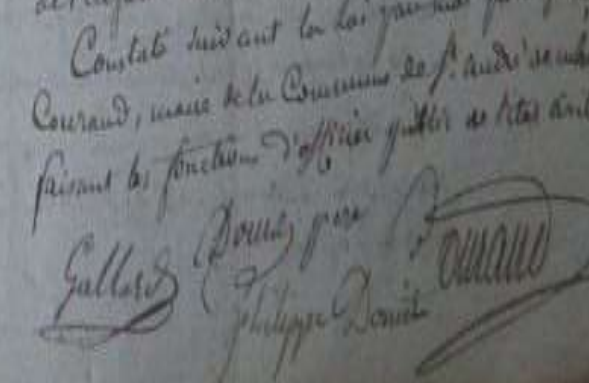 Constaté suivant la loi par moi
Couraud, maire de la Commune de St. andré
faisant les fonctions d'officier public de l'état
Gallard père Couraud
philippe